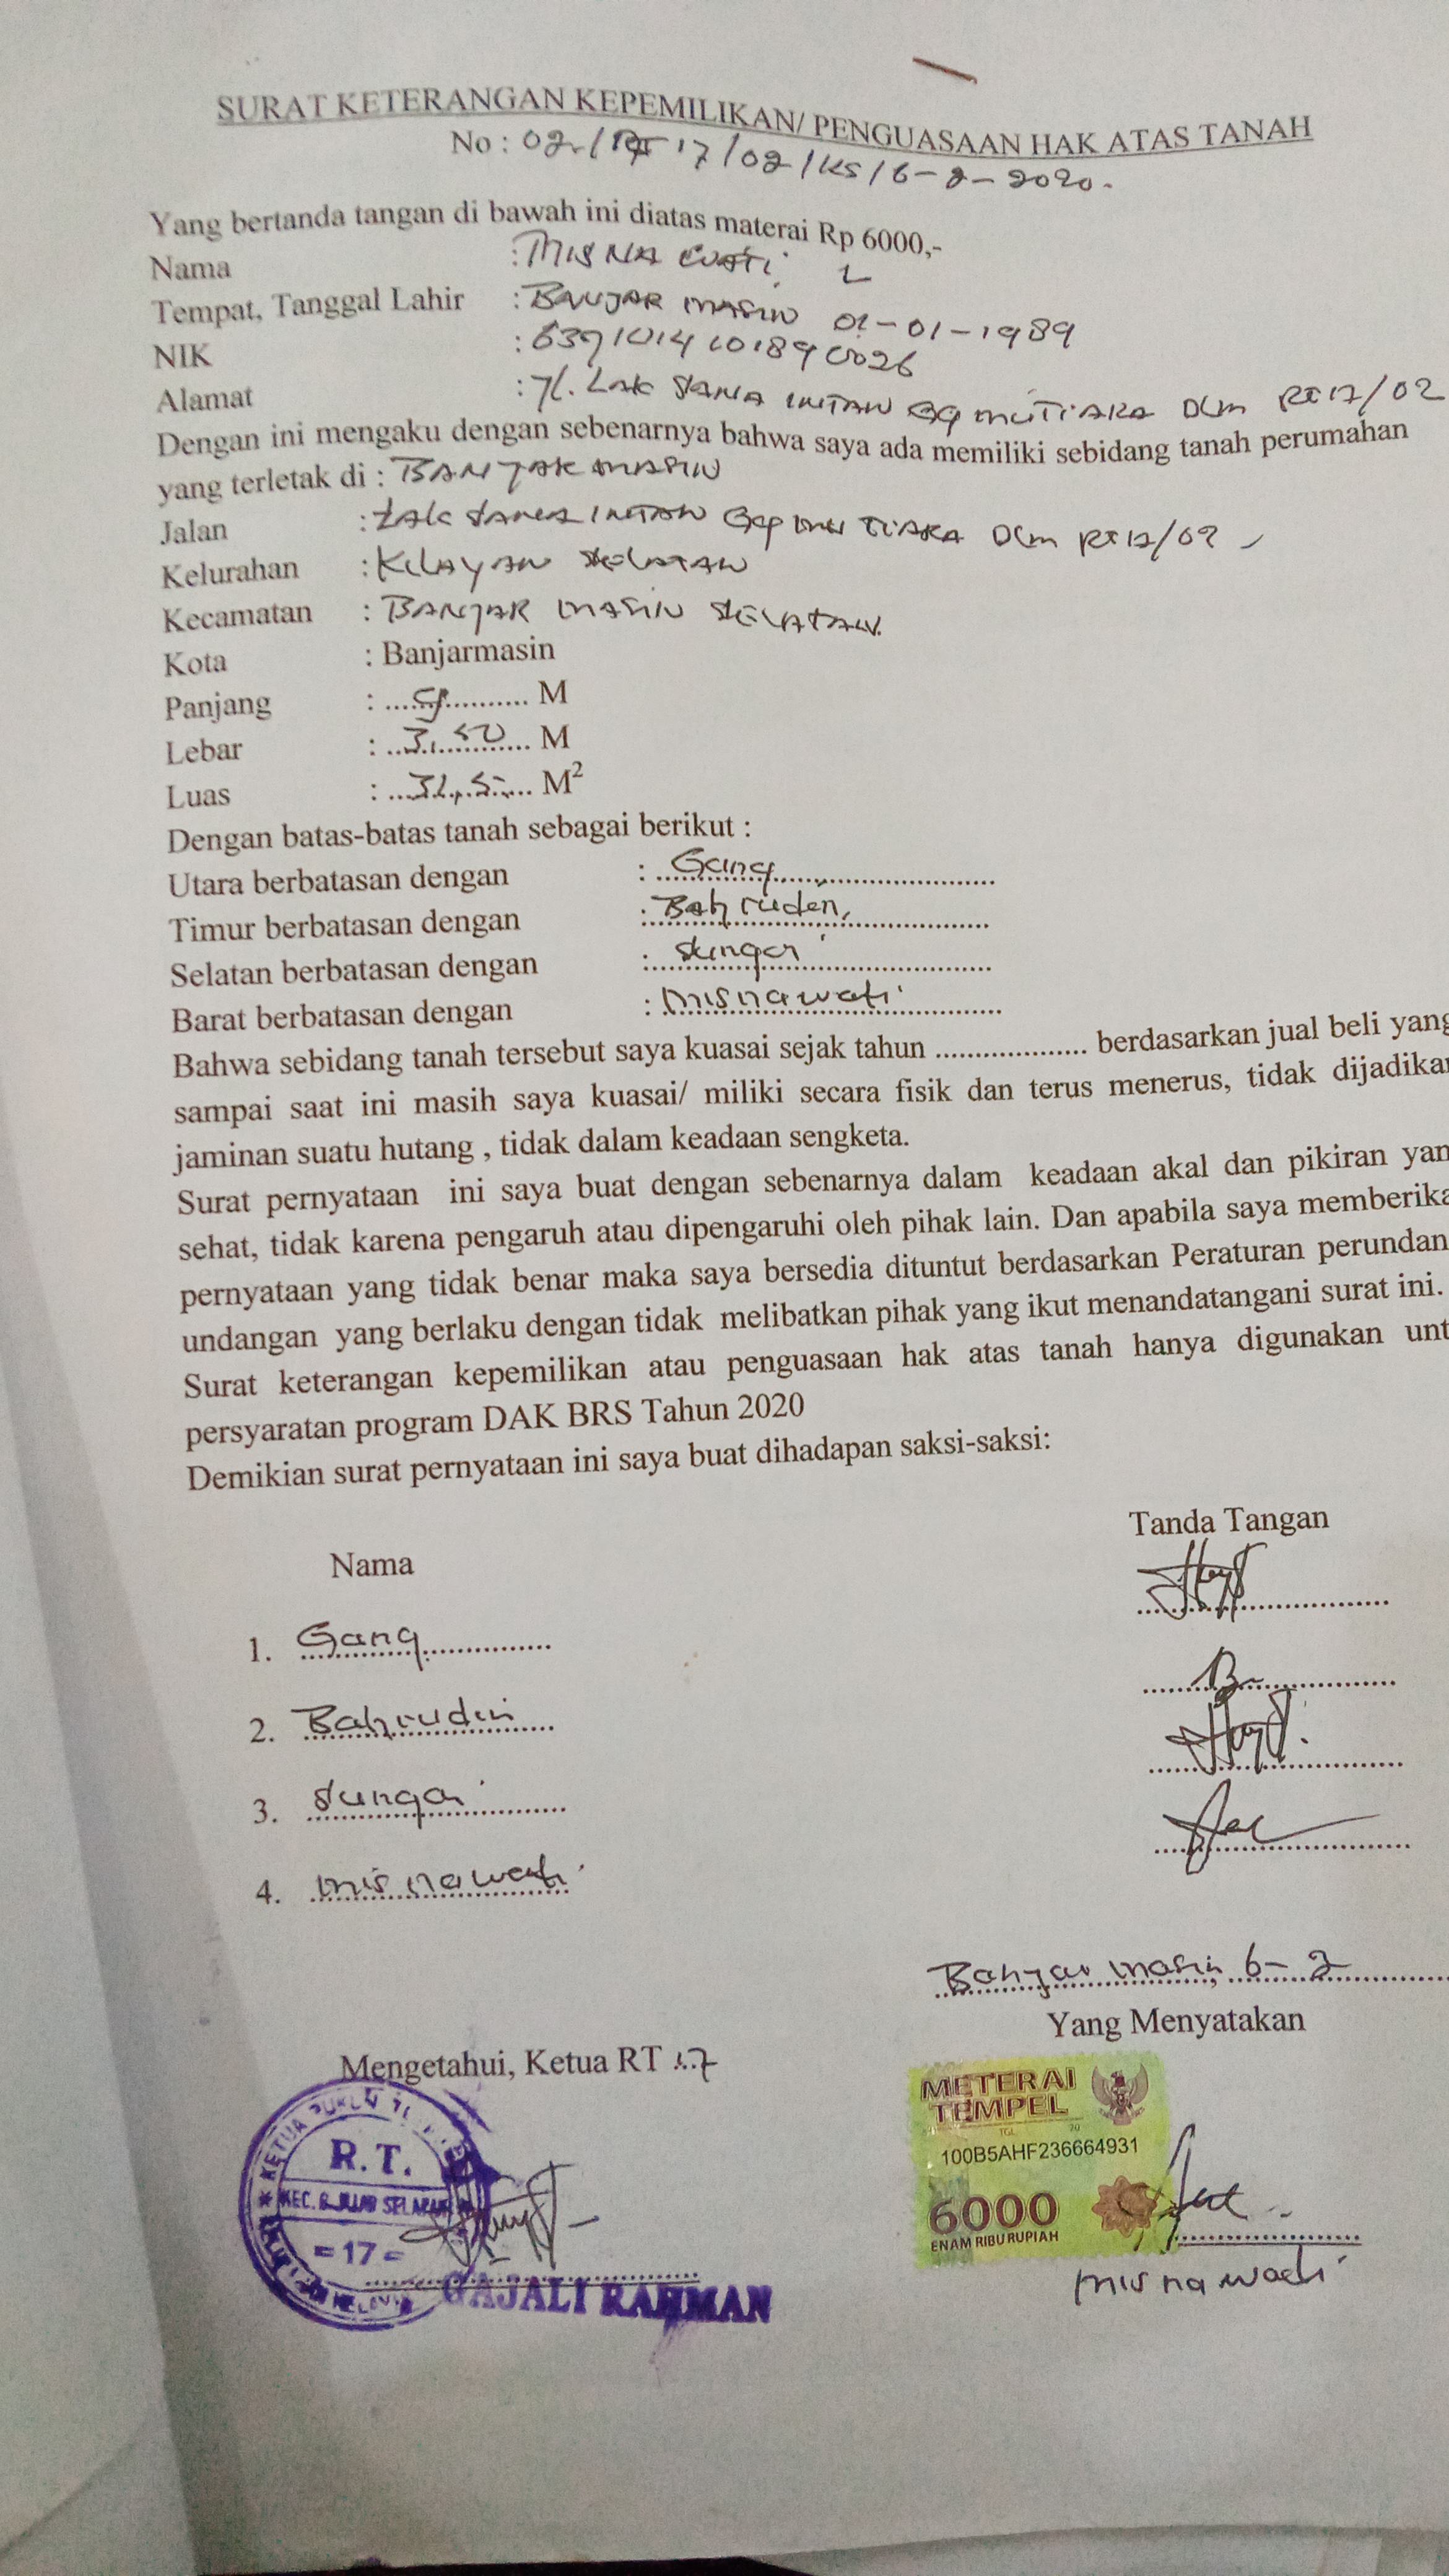 SURAT KETERANGAN KEPEMILIKAN/ PENGUASAAN HAK ATAS TANAH
No : 02/RT 17/02/KS/6-2-2020.
Yang bertanda tangan di bawah ini diatas materai Rp 6000,-
Nama : MISNA WATI
Tempat, Tanggal Lahir : BANJAR MASIN 01-01-1989
NIK :
Alamat : Jl. LAK SANA INTAN GG MUTIARA DLM RT 17/02
Dengan ini mengaku dengan sebenarnya bahwa saya ada memiliki sebidang tanah perumahan
yang terletak di : BANJAR MASIN
Jalan : LAK SANA INTAN GG MUTIARA DLM RT 17/02
Kelurahan : KELAYAN SELATAN
Kecamatan : BANJAR MASIN SELATAN.
Kota : Banjarmasin
Panjang : ....9........... M
Lebar : ...3,50...... M
Luas : ...31,5..... M²
Dengan batas-batas tanah sebagai berikut :
Utara berbatasan dengan : Gang
Timur berbatasan dengan : Bahruden,
Selatan berbatasan dengan : Sungai
Barat berbatasan dengan : Misnawati
Bahwa sebidang tanah tersebut saya kuasai sejak tahun ................... berdasarkan jual beli yang
sampai saat ini masih saya kuasai/ miliki secara fisik dan terus menerus, tidak dijadikan
jaminan suatu hutang , tidak dalam keadaan sengketa.
Surat pernyataan ini saya buat dengan sebenarnya dalam keadaan akal dan pikiran yan
sehat, tidak karena pengaruh atau dipengaruhi oleh pihak lain. Dan apabila saya memberika
pernyataan yang tidak benar maka saya bersedia dituntut berdasarkan Peraturan perundan
undangan yang berlaku dengan tidak melibatkan pihak yang ikut menandatangani surat ini.
Surat keterangan kepemilikan atau penguasaan hak atas tanah hanya digunakan unt
persyaratan program DAK BRS Tahun 2020
Demikian surat pernyataan ini saya buat dihadapan saksi-saksi:
Tanda Tangan
Nama
1. Gang
2. Bahrudin
3. Sungai
4. Misnawati
Banjar masin, 6-2
Yang Menyatakan
Mengetahui, Ketua RT 17
METERAI
TEMPEL
TGL 20
100B5AHF236664931
6000
ENAM RIBU RUPIAH
R.T.
= 17 =
GAJALI RAHMAN
Misnawati